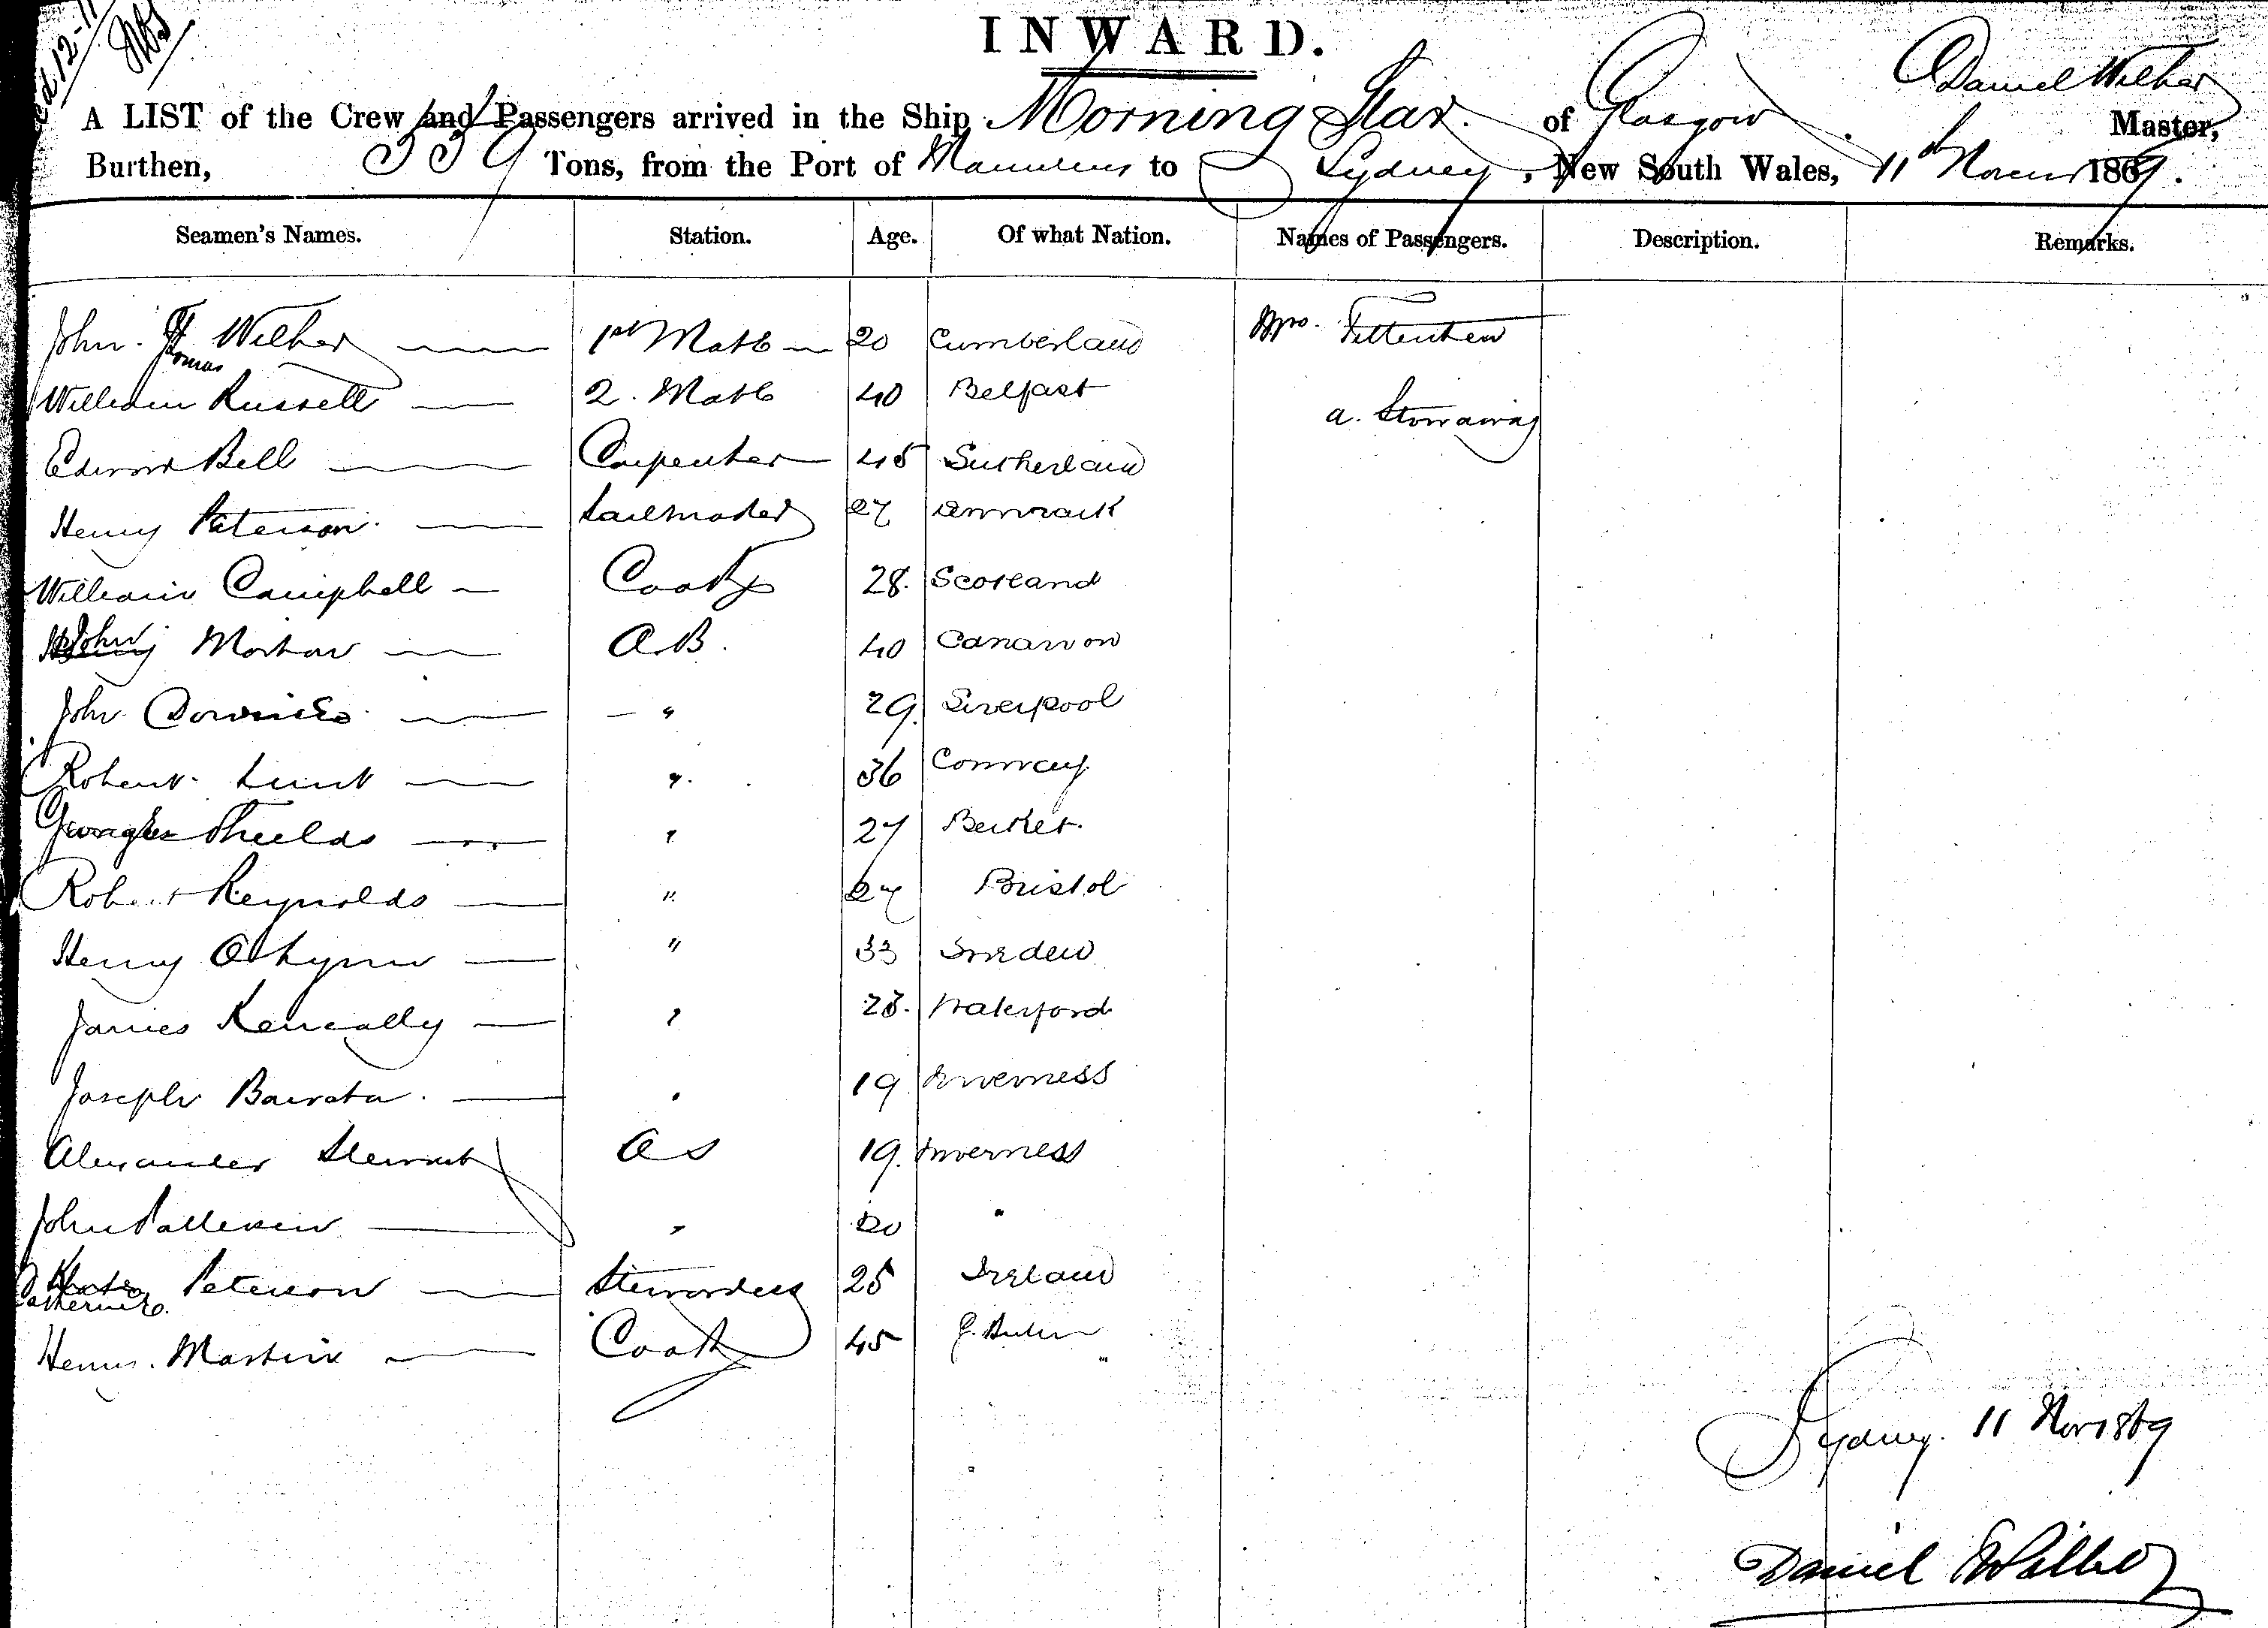 INWARD.
Daniel Wilkes
A LIST of the Crew and Passengers arrived in the Ship Morning Star. of Glasgow Master,
Burthen, 559 Tons, from the Port of Mauritius to Sydney, New South Wales, 11th 1869.
Seamen's Names. Station. Age. Of what Nation. Names of Passengers. Description. Remarks.
John. Thomas 1st Mate 20 Cumberland
William Russell 2. Mate 40 Belfast
a. Stowaway
Edward Bell Carpenter 45 Sutherland
Henry Paterson. Sailmaker 27 Denmark
William Campbell Cook 28. Scotland
John A.B. 40 Canarvon
John 29. Liverpool
Robert 36 Conway
Shields 27
Robert Reynolds " 27 Bristol
Henry " 33 Sweden
James Keneally 23. Waterford
Joseph 19 Inverness
Alexander Stewart OS 19. Inverness
John 20 "
Catherine Peterson Stewardess 25 Ireland
Martin Cook 45
Sydney. 11 Nov 1869
Daniel